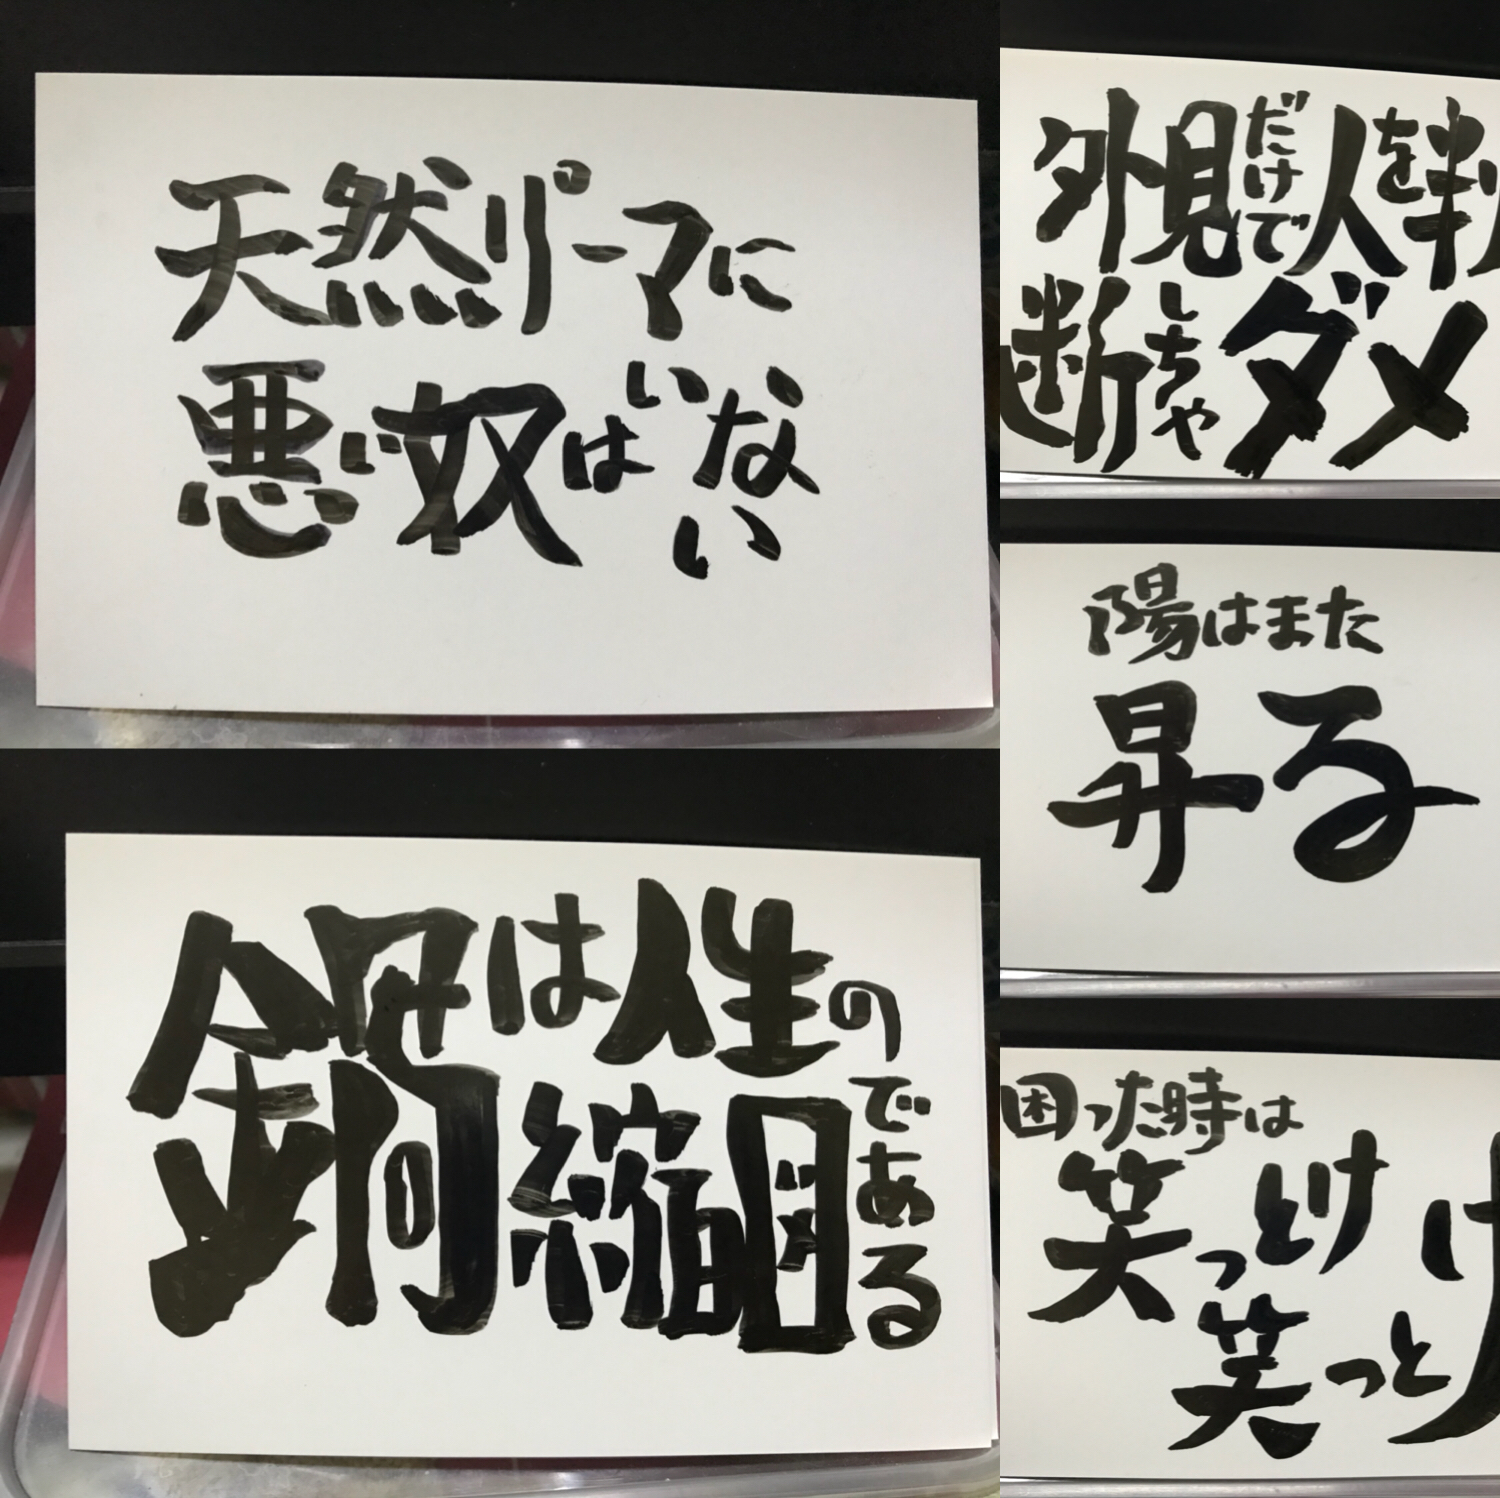 天然パーマに
悪い奴はいない
鍋は人生の
縮図である
外見だけで人を判
断しちゃダメ
陽はまた
昇る
困った時は
笑っとけ
笑っとけ